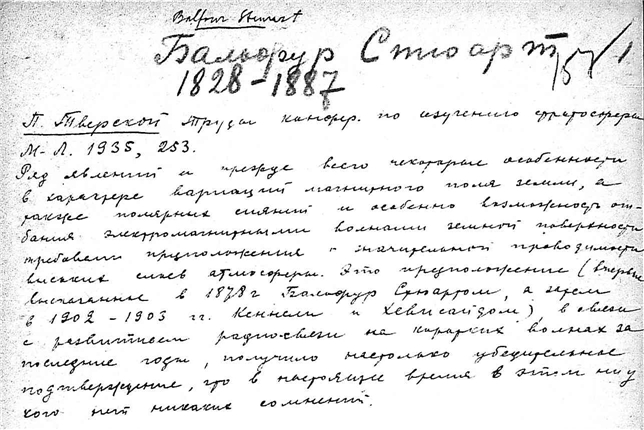 Balfour Stewart
Бальфур Стюарт
1828-1887
П. Тверской Труды конфер. по изучению стратосферы
М-Л. 1935, 253.
Ряд явлений и прежде всего некоторые особенности
в характере вариаций магнитного поля земли, а
также полярных сияний и особенно возможность оги-
бания электромагнитными волнами земной поверхности
требовали предположения о значительной проводимости
высоких слоев атмосферы. Это предположение (впервые
высказанное в 1878 г Бальфур Стюартом, а затем
в 1902-1903 гг. Кеннели и Хевисайдом), в связи
с развитием радиосвязи на коротких волнах за
последние годы, получило настолько убедительное
подтверждение, что в настоящее время в этом ни у
кого нет никаких сомнений.